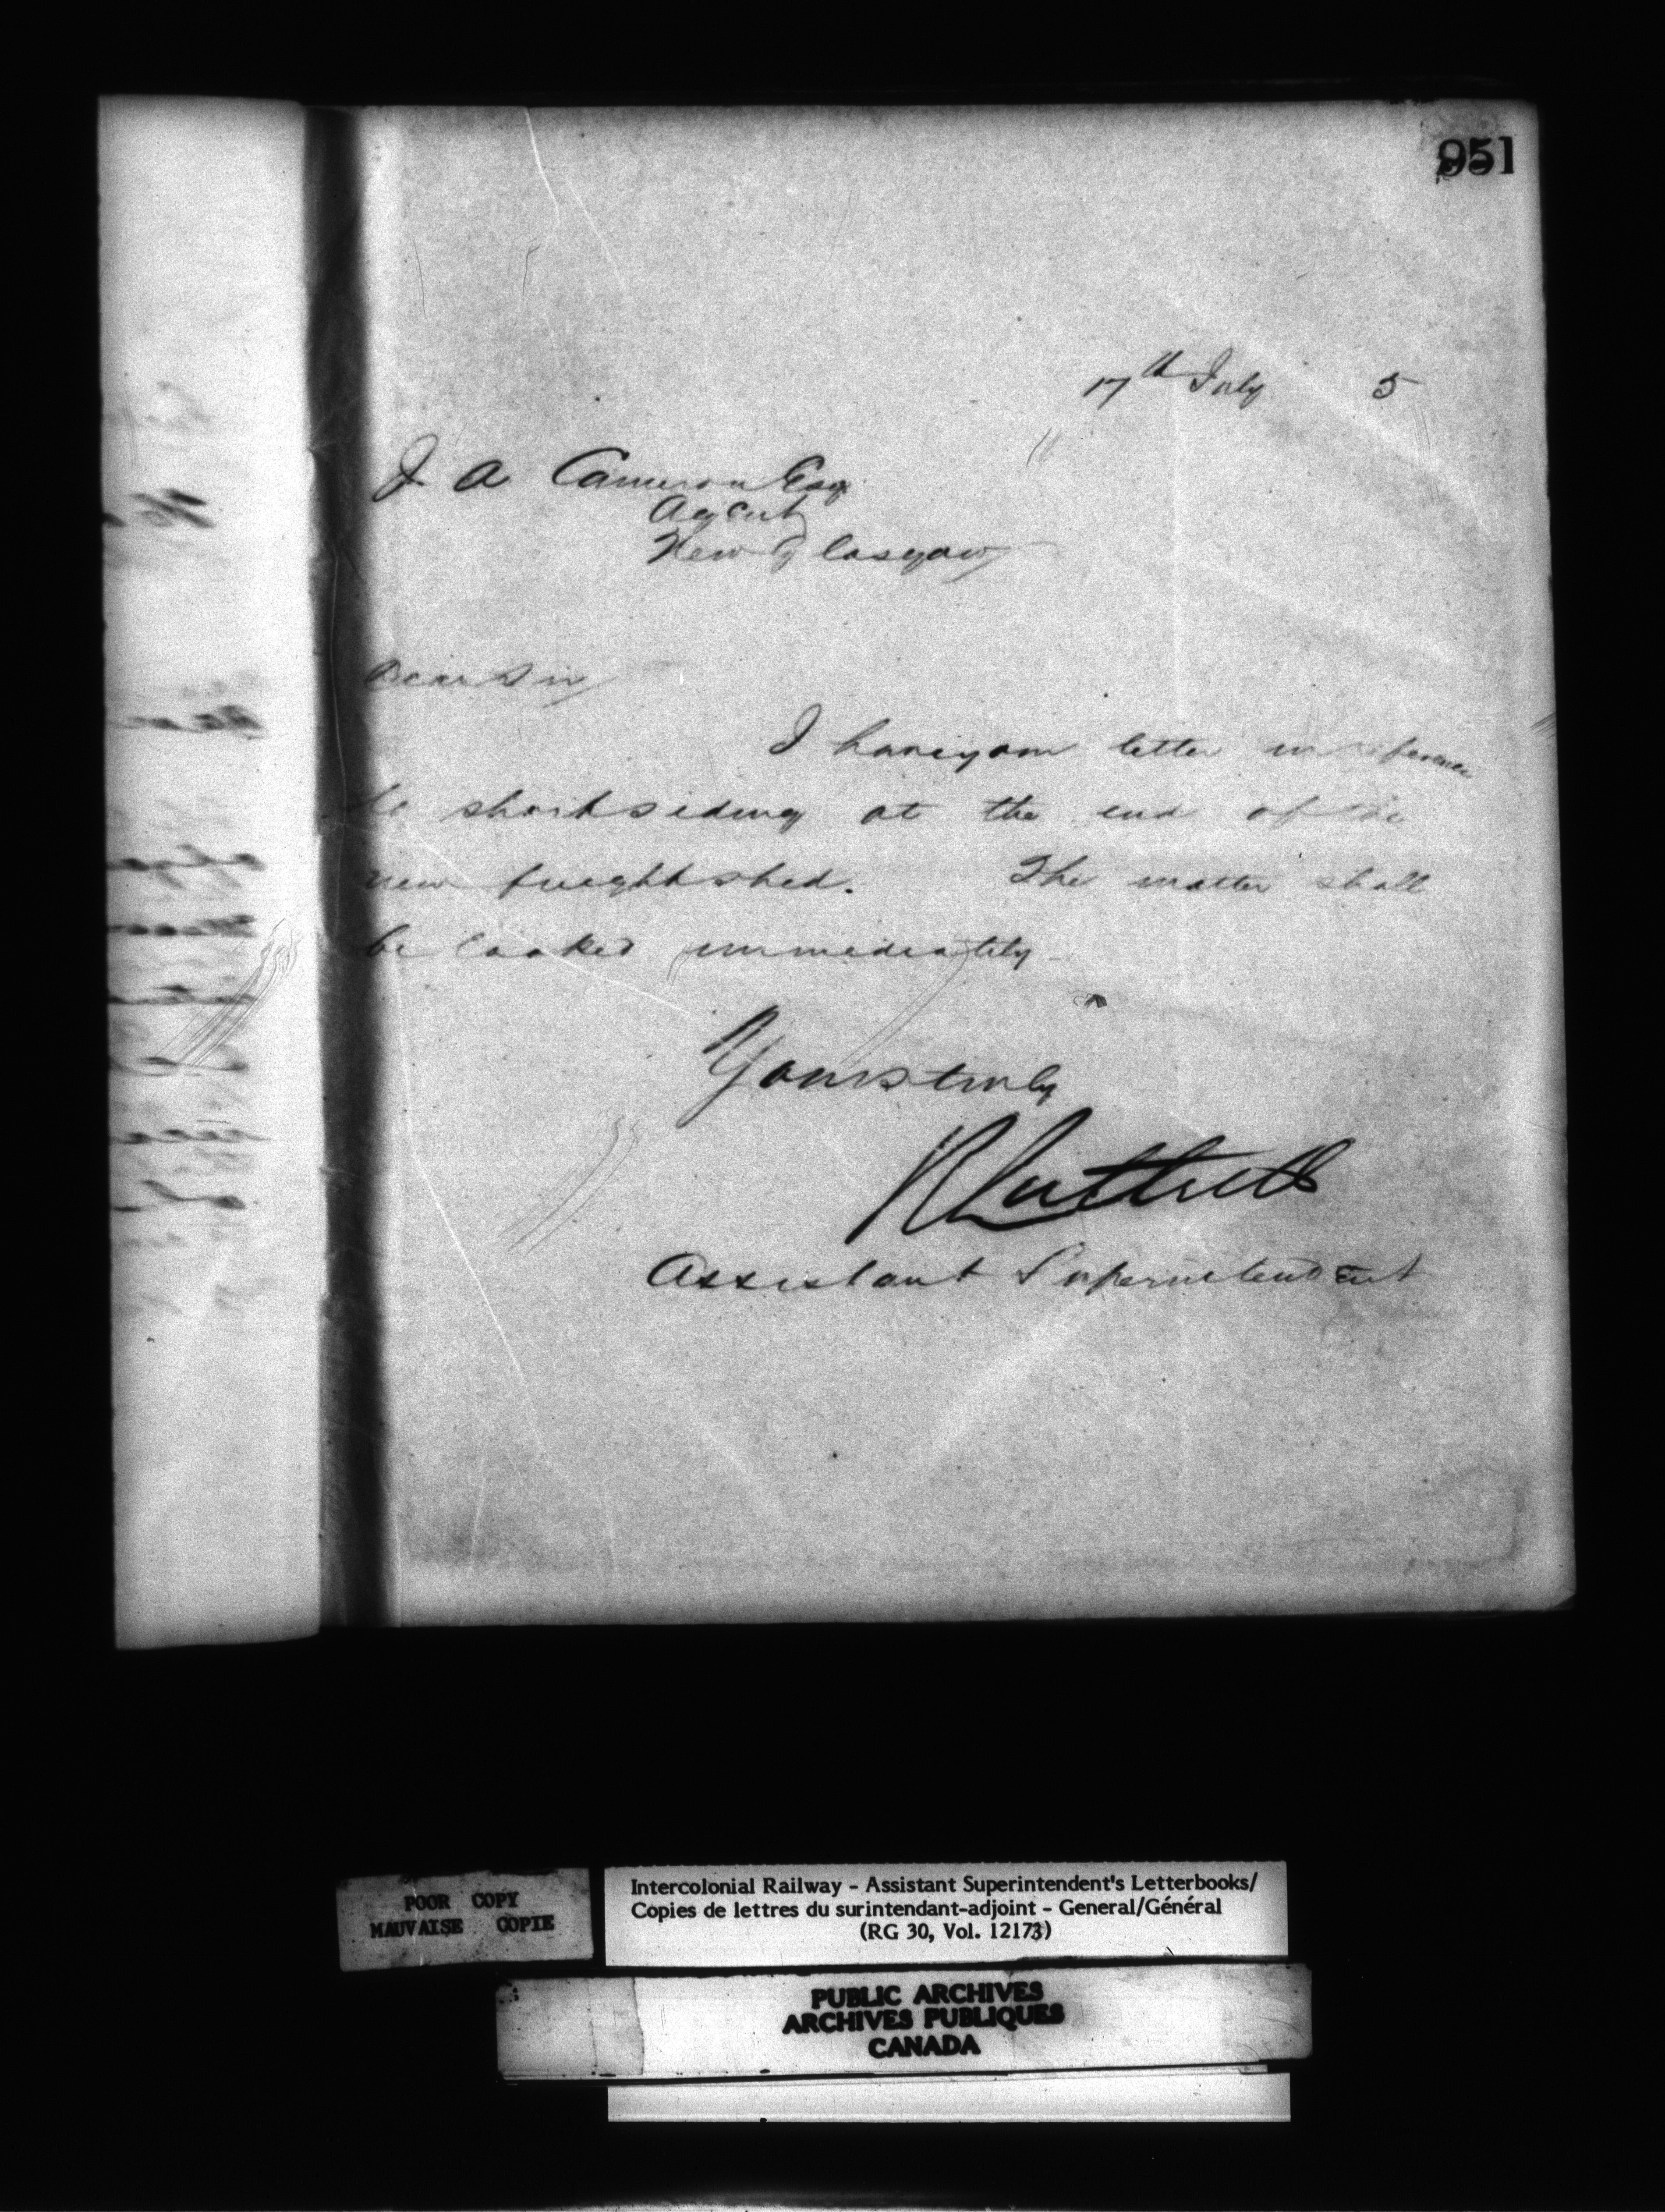 951
17th July 5
J A Cameron Esq
Agent
New Glasgow
Dear Sir
I have your letter in reference
to short siding at the end of the
new freight shed. The matter shall
be looked immediately
Yours truly
R Luttrell
Assistant Superintendent
POOR COPY
MAUVAISE COPIE
Intercolonial Railway - Assistant Superintendent's Letterbooks/
Copies de lettres du surintendant-adjoint - General/Général
(RG 30, Vol. 12173)
PUBLIC ARCHIVES
ARCHIVES PUBLIQUES
CANADA